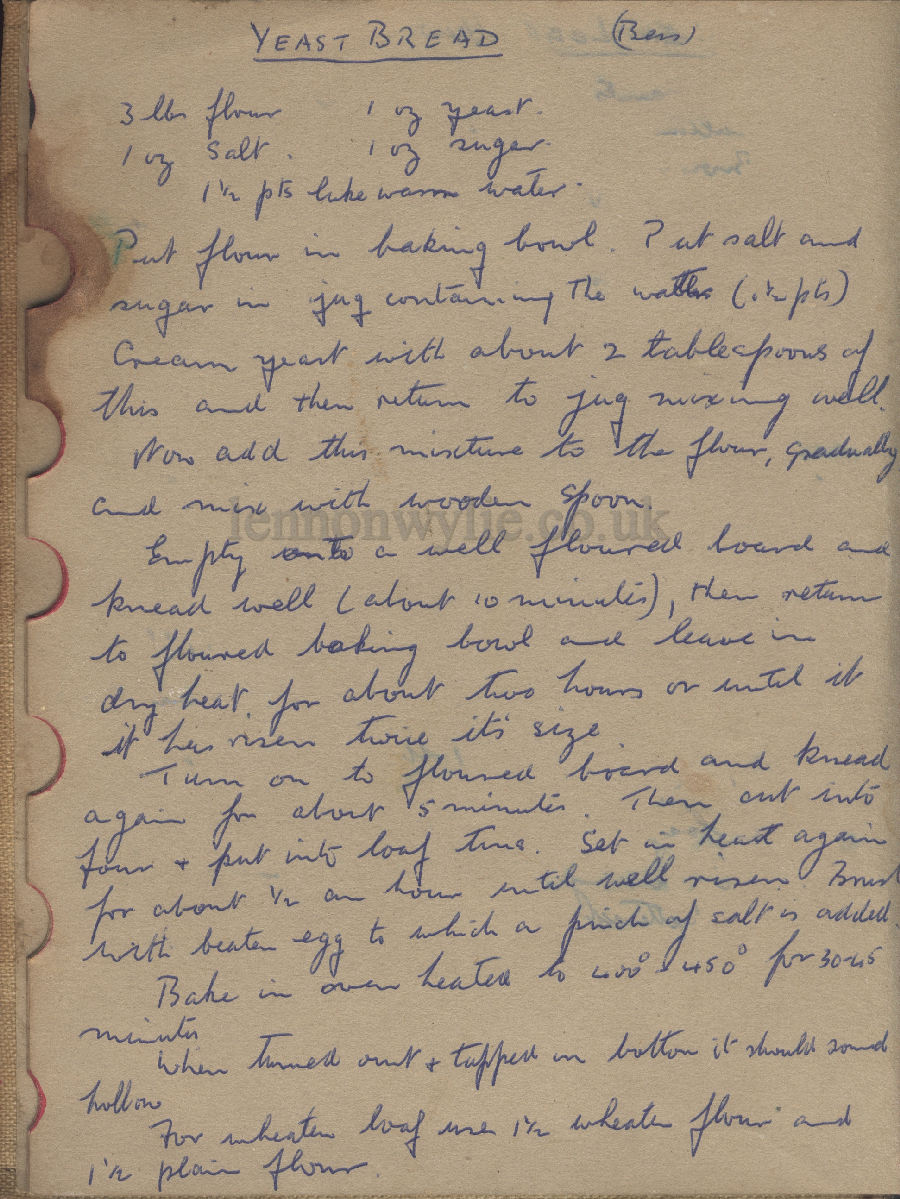 YEAST BREAD (Bess)
3 lbs flour 1 oz yeast.
1 oz Salt. 1 oz sugar.
1½ pts luke warm water.
Put flour in baking bowl. Put salt and
sugar in jug containing the water (1½ pts)
Cream yeast with about 2 tablespoons of
this and then return to jug mixing well.
Now add this mixture to the flour, gradually
and mix with wooden spoon.
lennonwylie.co.uk
Empty onto a well floured board and
knead well (about 10 minutes), then return
to floured baking bowl and leave in
dry heat for about two hours or until it
it has risen twice it's size
Turn on to floured board and knead
again for about 5 minutes. Then cut into
four + put into loaf tins. Set in heat again
for about ½ an hour until well risen. Brush
with beaten egg to which a pinch of salt is added.
Bake in oven heated to 400° - 450° for 30-45
minutes
When turned out + tapped on bottom it should sound
hollow
For wheaten loaf use 1½ wheaten flour and
1½ plain flour.